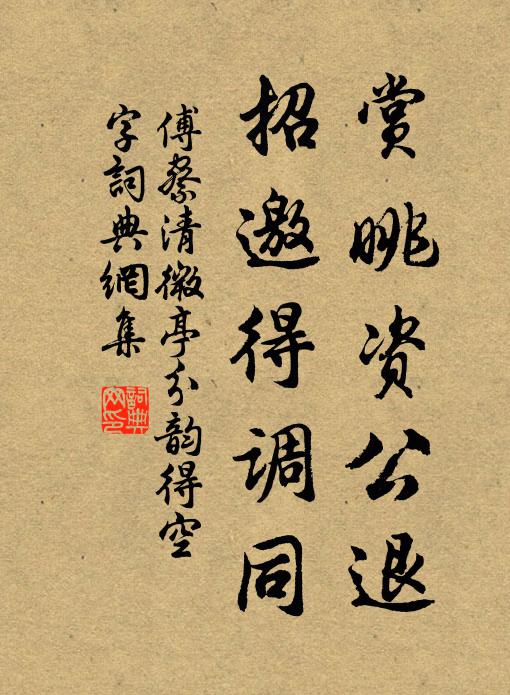 赏眺资公退
招邀得调同
傅察清微亭分韵得空
字詞典網集
詞典
网印